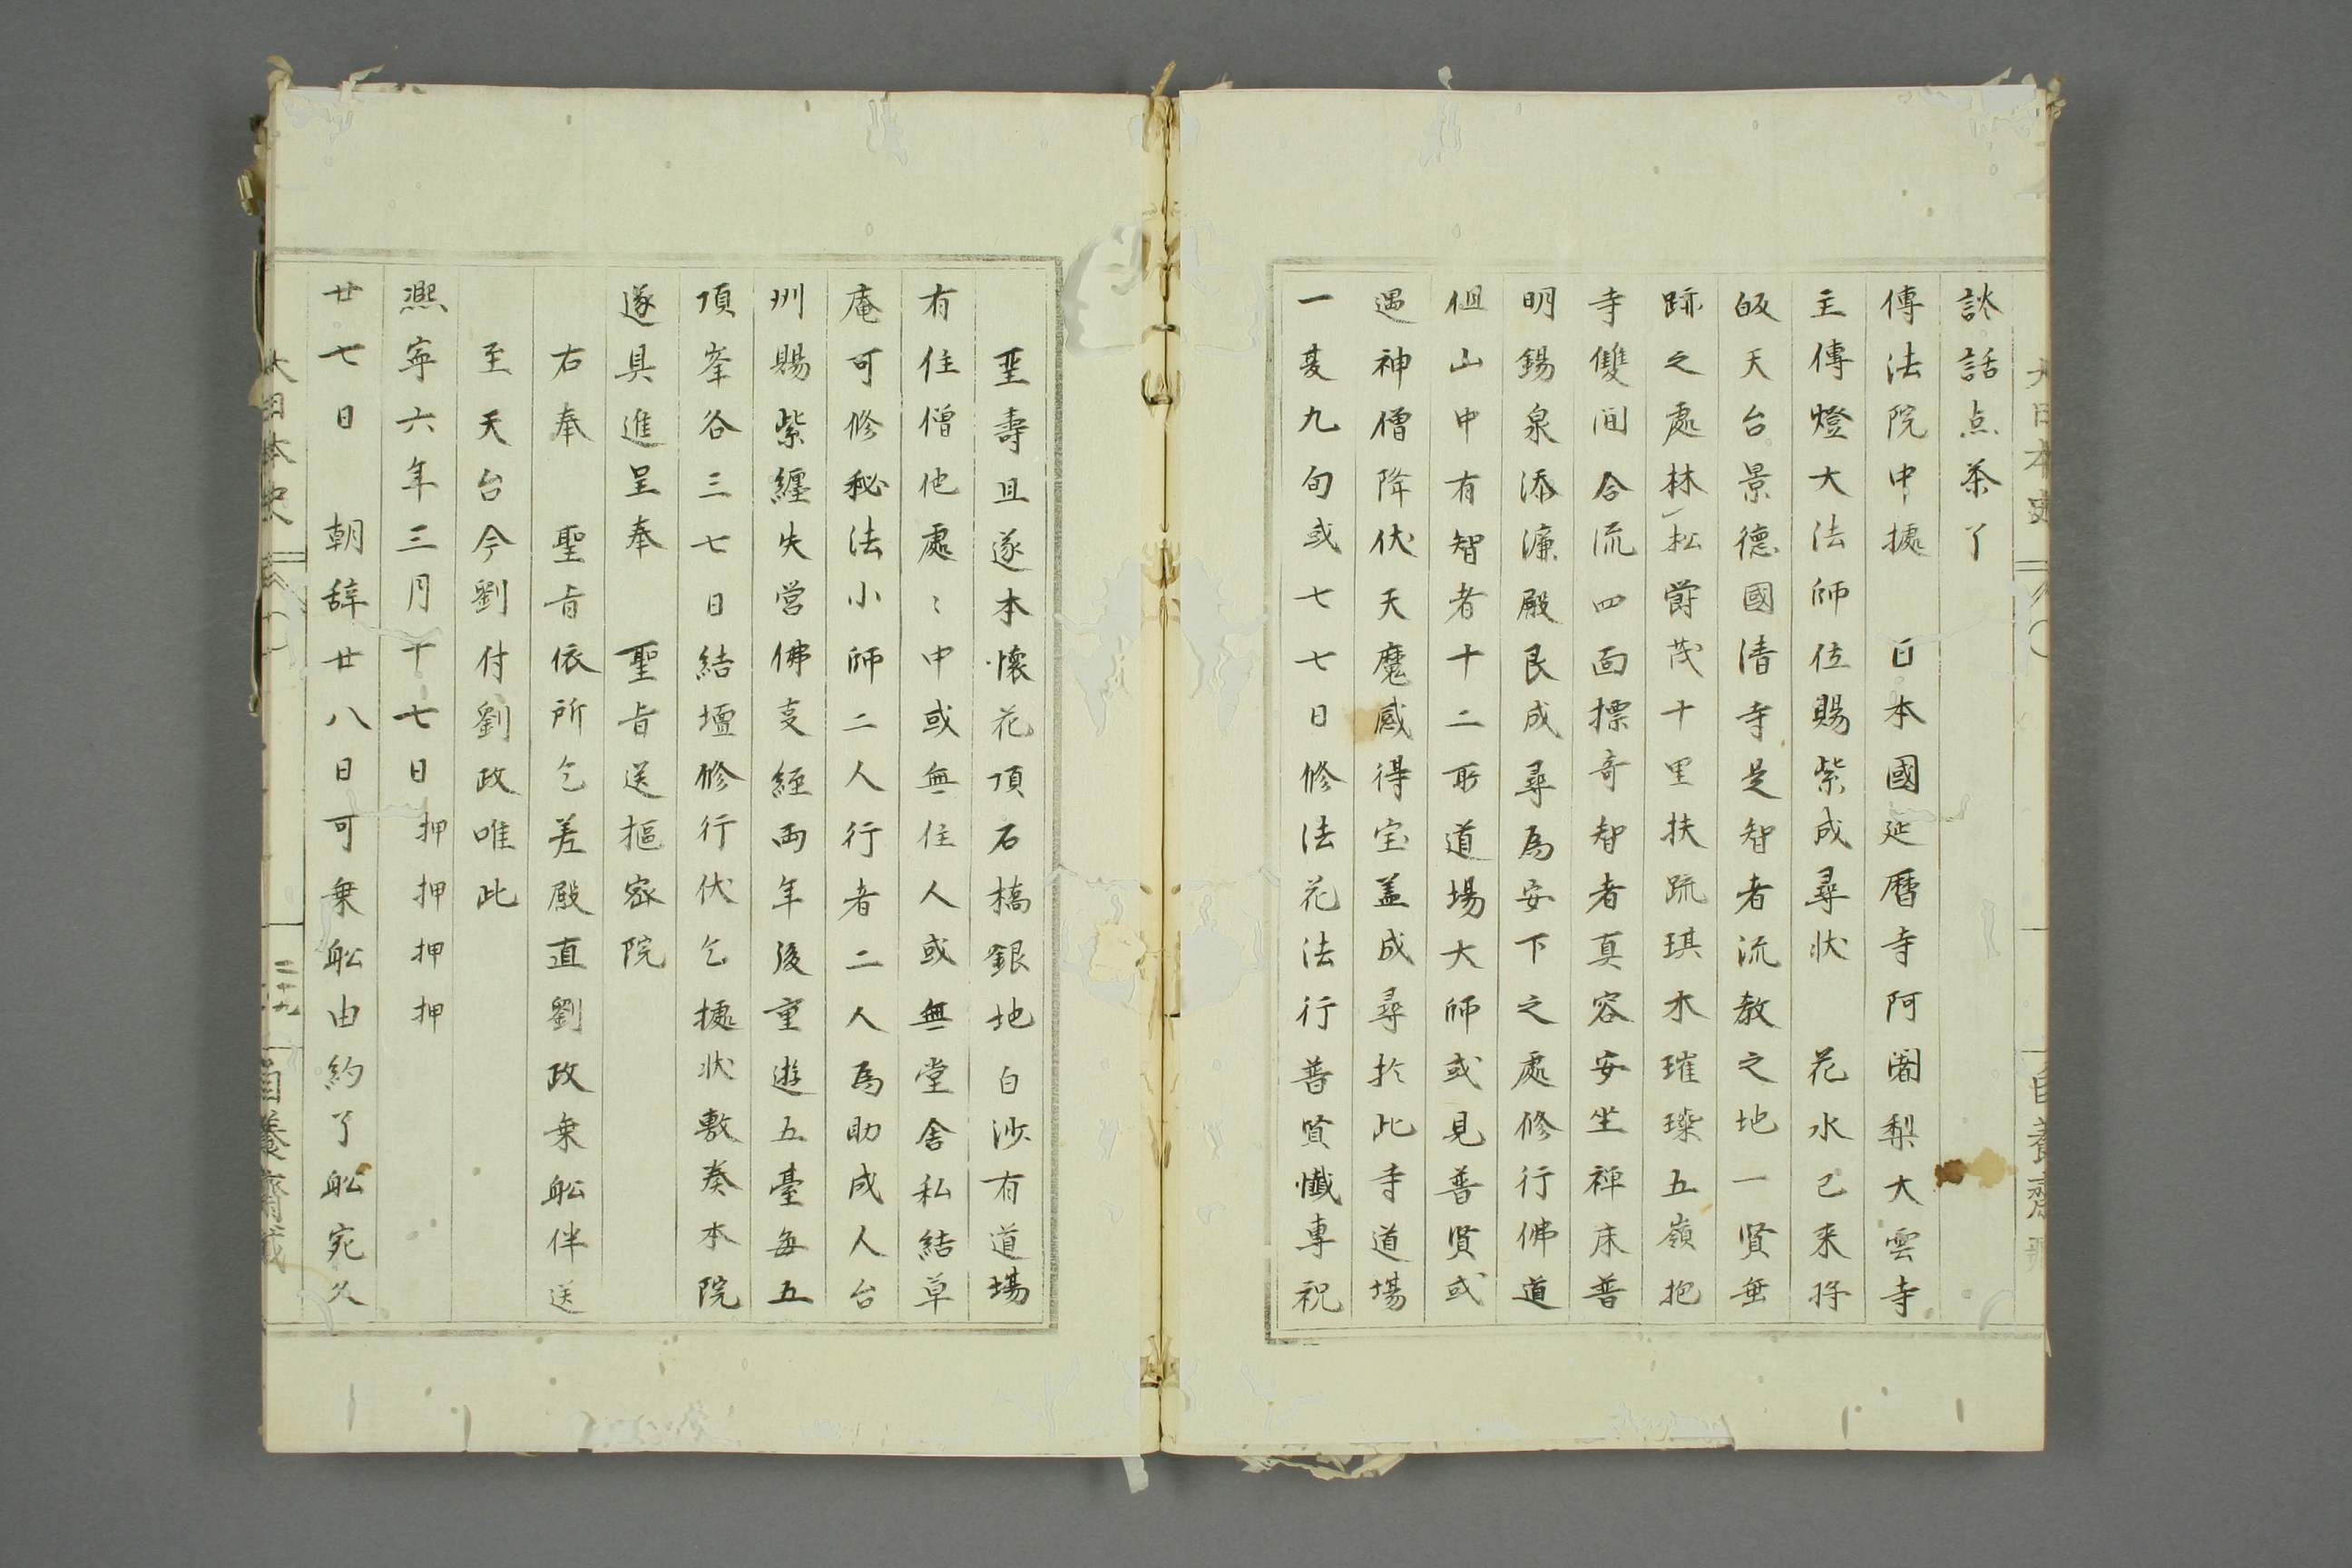 談話点茶了
傳法院申據　日本國延暦寺阿闍梨大雲寺
主傳燈大法師位賜紫成尋状　花水已来将
皈天台景德國清寺是智者流教之地一賢垂
跡之處林松欝茂十里扶疏琪木璀璨五嶺抱
寺雙澗合流四面摽奇智者真容安坐禅床普
明錫泉添濂殿艮成尋為安下之處修行佛道
但山中有智者十二所道場大師或見普賢或
遇神僧降伏天魔感得宝盖成尋於此寺道場
一夏九旬或七七日修法花法行普賢懺専祝
聖壽且遂本懐花頂石橋銀地白沙有道場
有住僧他處〻中或無住人或無堂舎私結草
庵可修秘法小師二人行者二人為助成人台
州賜紫纒失営佛支經両年後重遊五臺毎五
頂峯各三七日結壇修行伏乞據状敷奏本院
遂具進呈奉　聖旨送樞密院
右奉　聖旨依所乞差殿直劉政乗舩伴送
至天台今劉付劉政唯此
熈寧六年三月十七日押押押押
廿七日　朝辞廿八日可乗舩由約了舩宛久
大日本史
二十九
自養齋蔵